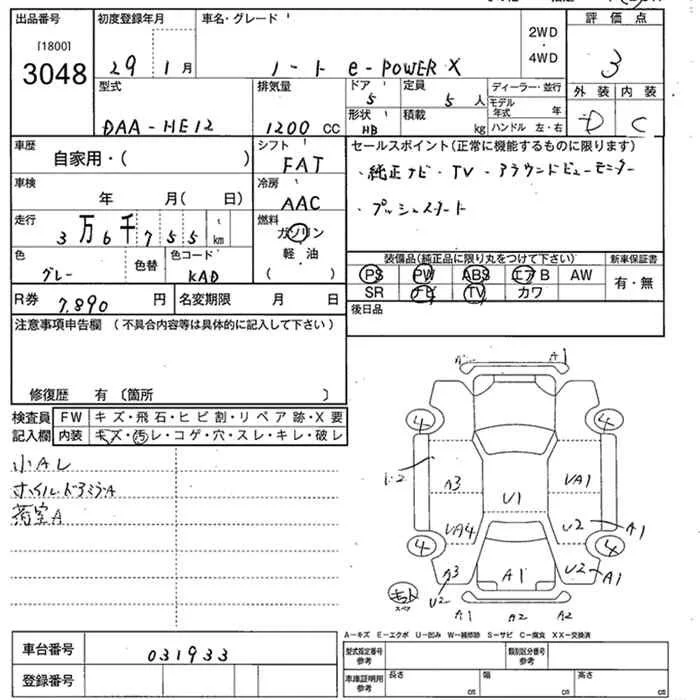 出品番号
[1800]
3048
初度登録年月
29 1月
車名・グレード
ノート e-POWER X
2WD
4WD
評価点
3
外装 内装
D C
型式
DAA-HE12
排気量
1200 CC
ドア
5
定員
5人
形状
HB
積載
kg
ディーラー・並行
モデル年式 年
ハンドル 左・右
車歴
自家用・( )
シフト
FAT
セールスポイント(正常に機能するものに限ります)
・純正ナビ・TV・アラウンドビューモニター
・プッシュスタート
車検
年 月( 日)
冷房
AAC
走行
3万6千755km
燃料
ガソリン
軽・油
( )
色
グレー
色替
色コード
KAD
装備品(純正品に限り丸をつけて下さい)
新車保証書
PS PW ABS エアB AW
SR ナビ TV カワ
有・無
R券 7,890円
名変期限 月 日
後日品
注意事項申告欄(不具合内容等は具体的に記入して下さい)
修復歴 有〔箇所 〕
検査員記入欄
FW キズ・飛石・ヒビ割・リペア跡・X要
内装 キズ・汚レ・コゲ・穴・スレ・キレ・破レ
小AL
ホイルドアミラA
荷室A
A1
4 4
A3
U1
VA1
VA4
U2 A1
4 4
A3
U2
A1
U2 A1
スペア
A1 A2 A2
A-キズ E-エクボ U-凹み W-補修跡 S-サビ C-腐食 XX-交換済
車台番号
031933
登録番号
型式指定番号参考
類別区分番号参考
車庫証明用参考
長さ cm
幅 cm
高さ cm